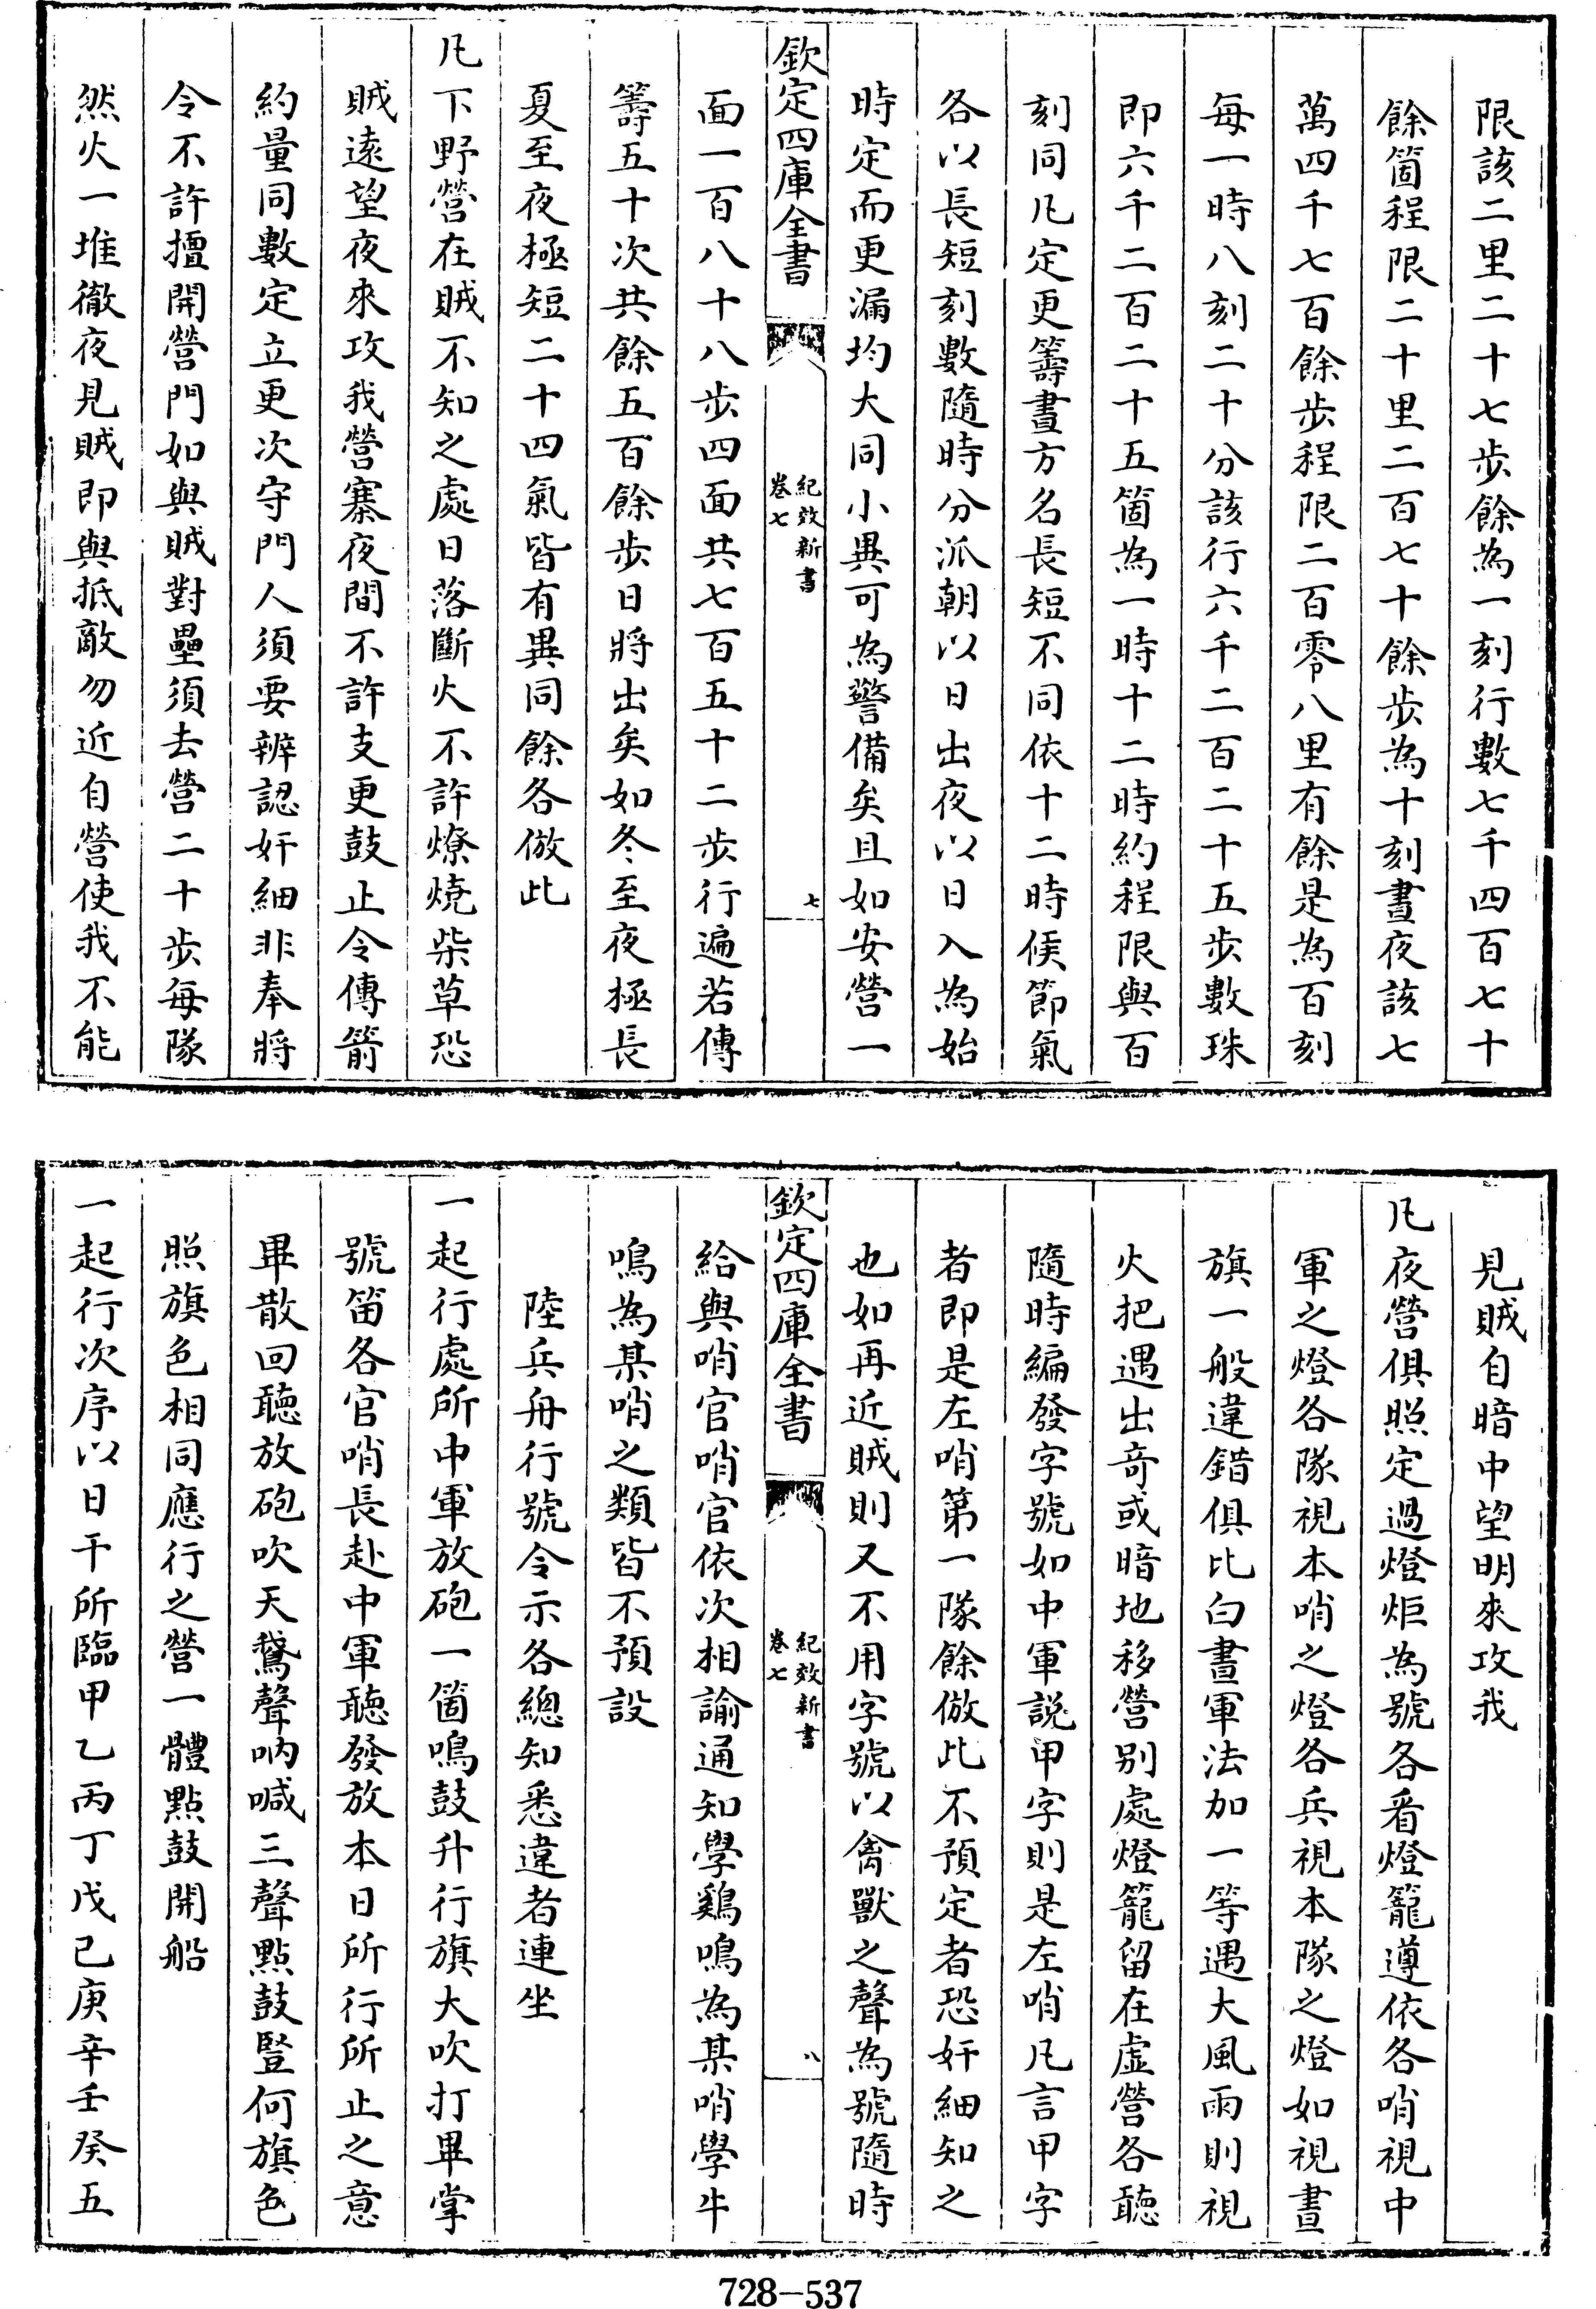 限該二里二十七步餘為一刻行數七千四百七十
餘箇程限二十里二百七十餘步為十刻晝夜該七
萬四千七百餘步程限二百零八里有餘是為百刻
每一時八刻二十分該行六千二百二十五步數珠
即六千二百二十五箇為一時十二時約程限與百
刻同凡定更籌晝方名長短不同依十二時候節氣
各以長短刻數隨時分派朝以日出夜以日入為始
時定而更漏均大同小異可為警備矣且如安營一
欽定四庫全書
紀效新書
卷七
七
面一百八十八步四面共七百五十二步行遍若傳
籌五十次共餘五百餘步日將出矣如冬至夜極長
夏至夜極短二十四氣皆有異同餘各倣此
凡下野營在賊不知之處日落斷火不許燎燒柴草恐
賊遠望夜來攻我營寨夜間不許支更鼓止令傳箭
約量同數定立更次守門人須要辨認奸細非奉將
令不許擅開營門如與賊對壘須去營二十步每隊
然火一堆徹夜見賊即與抵敵勿近自營使我不能
見賊自暗中望明來攻我
凡夜營俱照定過燈炬為號各看燈籠遵依各哨視中
軍之燈各隊視本哨之燈各兵視本隊之燈如視晝
旗一般違錯俱比白晝軍法加一等遇大風雨則視
火把遇出奇或暗地移營别處燈籠留在虛營各聽
隨時編發字號如中軍說甲字則是左哨凡言甲字
者即是左哨第一隊餘倣此不預定者恐奸細知之
也如再近賊則又不用字號以禽獸之聲為號隨時
欽定四庫全書
紀效新書
卷七
八
給與哨官哨官依次相諭通知學鷄鳴為某哨學牛
鳴為某哨之類皆不預設
陸兵舟行號令示各總知悉違者連坐
一起行處所中軍放砲一箇鳴鼓升行旗大吹打畢掌
號笛各官哨長赴中軍聽發放本日所行所止之意
畢散回聽放砲吹天鵞聲吶喊三聲點鼓豎何旗色
照旗色相同應行之營一體點鼓開船
一起行次序以日干所臨甲乙丙丁戊己庚辛壬癸五
728-537